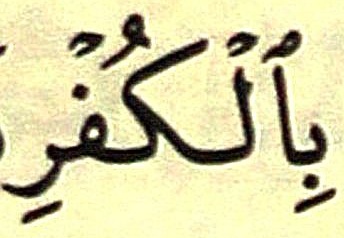 بِٱلْكُفْرِ